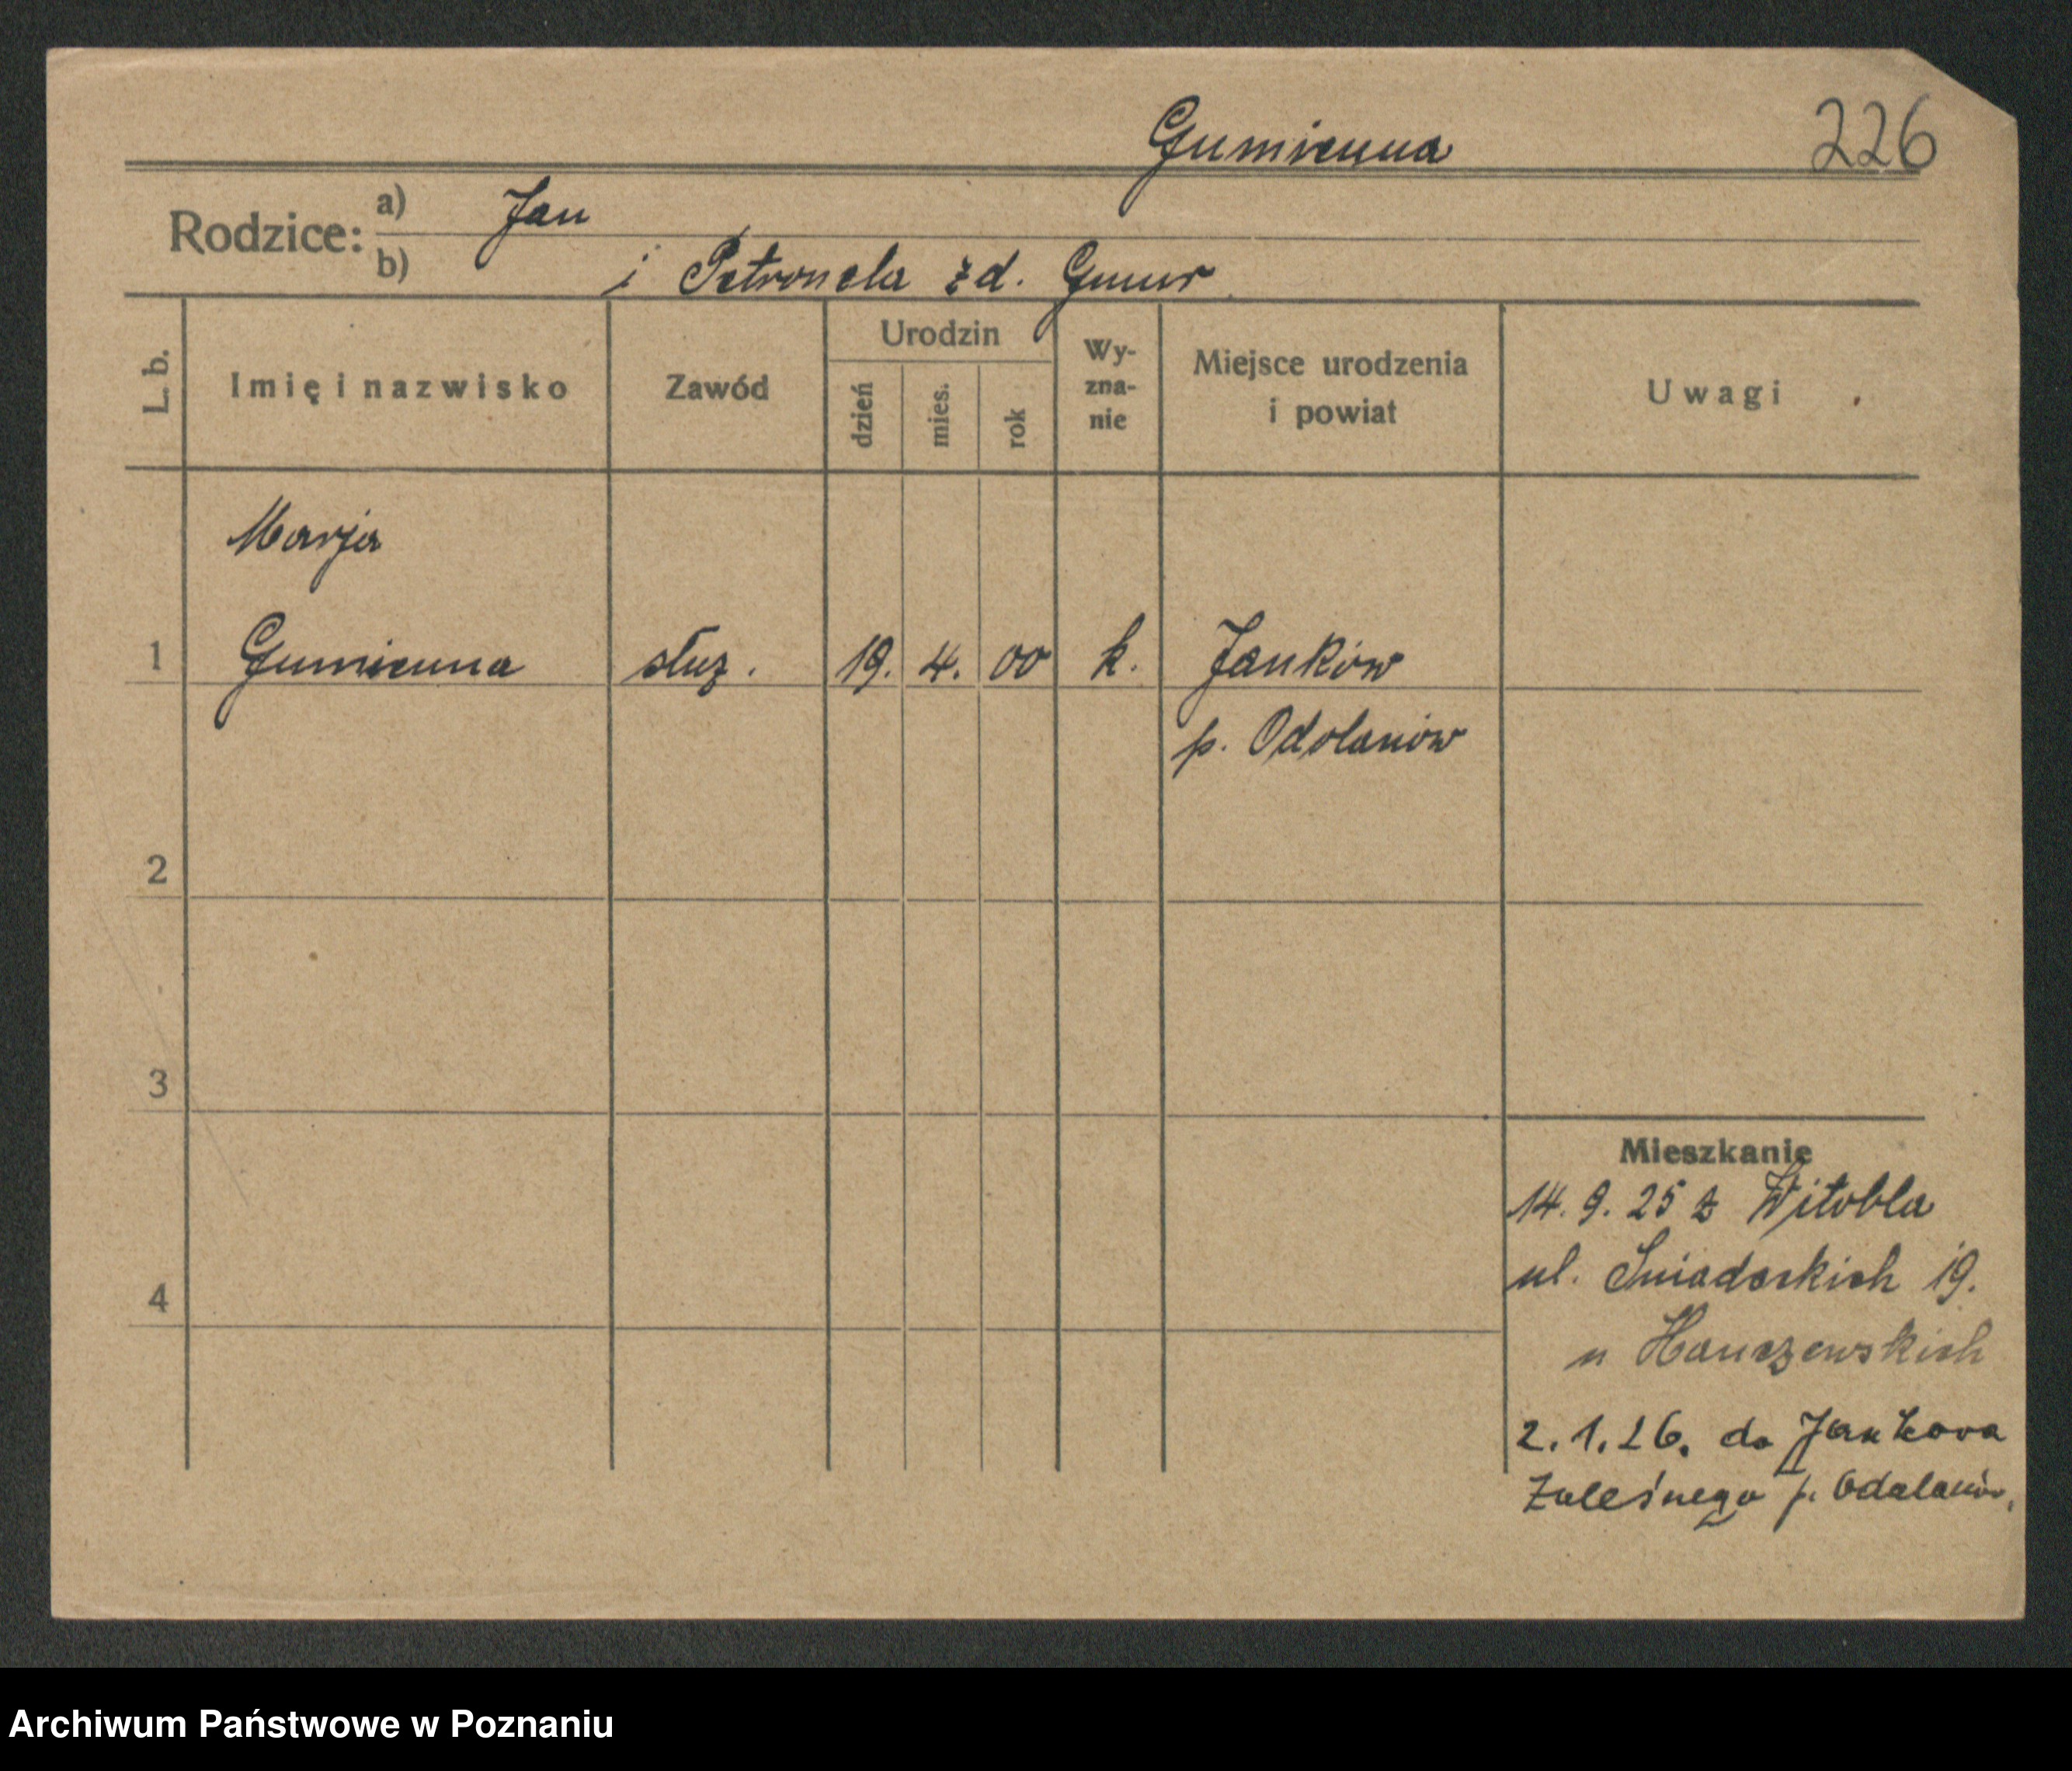 Gumienna
226
Rodzice:
a) Jan
b) i Petronela zd. Gmur
L. b.
Imię i nazwisko
Zawód
Urodzin
dzień
mies.
rok
Wy-
zna-
nie
Miejsce urodzenia
i powiat
Uwagi
Marja
1 Gumienna służ. 19. 4. 00 k. Janków
p. Odolanów
2
3
4
Mieszkanie
14. 9. 25 z Witobla
ul. Śniadeckich 19.
u Hanczewskich
2. 1. 26. do Jankowa
Zaleśnego p. Odolanów.
Archiwum Państwowe w Poznaniu